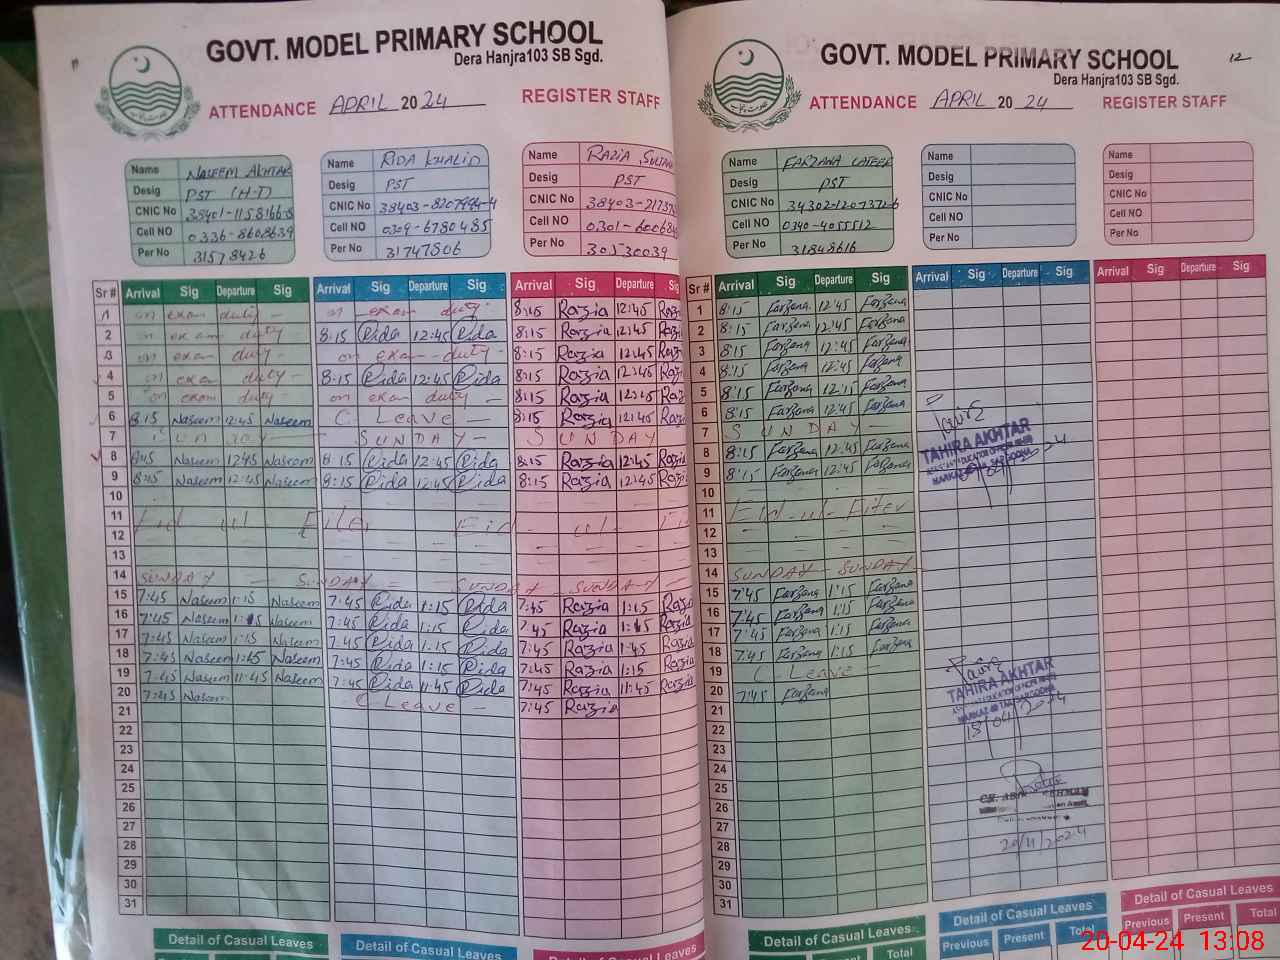 GOVT. MODEL PRIMARY SCHOOL
Dera Hanjra103 SB Sgd.
ATTENDANCE APRIL 2024 REGISTER STAFF
Name NASEEM AKHTAR
Desig PST (H-T)
CNIC No 38401-1158166-8
Cell NO 0336-8608639
Per No 31578426
Name RIDA KHALID
Desig PST
CNIC No
Cell NO 0309-6780485
Per No 31747806
Name RAZIA SULTAN
Desig PST
CNIC No 38403-2173
Cell NO 0301-60068
Per No 30530039
Sr # Arrival Sig Departure Sig Arrival Sig Departure Sig Arrival Sig Departure Sig
1 on exam duty - on exam duty - 8:15 Razia 12:45 Razi
2 on exam duty - 8:15 Rida 12:45 Rida 8:15 Razia 12:45 Razi
3 on exam duty - on exam duty - 8:15 Razia 12:45 Razi
4 on exam duty - 8:15 Rida 12:45 Rida 8:15 Razia 12:45 Razi
5 on exam duty - on exam duty - 8:15 Razia 12:45 Razi
6 8:15 Naseem 12:45 Naseem C Leave - 8:15 Razia 12:45 Razi
7 SUNDAY - SUNDAY - SUNDAY
8 8:15 Naseem 12:45 Naseem 8:15 Rida 12:45 Rida 8:15 Razia 12:45 Razi
9 8:15 Naseem 12:45 Naseem 8:15 Rida 12:45 Rida 8:15 Razia 12:45 Razi
10
11 Eid ul Fiter Eid - ul - Fi
12
13
14 SUNDAY - SUNDAY - SUNDAY SUNDAY -
15 7:45 Naseem 1:15 Naseem 7:45 Rida 1:15 Rida 7:45 Razia 1:15 Razi
16 7:45 Naseem 1:15 Naseem 7:45 Rida 1:15 Rida 7:45 Razia 1:15 Razi
17 7:45 Naseem 1:15 Naseem 7:45 Rida 1:15 Rida 7:45 Razia 1:15 Razi
18 7:45 Naseem 1:15 Naseem 7:45 Rida 1:15 Rida 7:45 Razia 1:15 Razi
19 7:45 Naseem 11:45 Naseem 7:45 Rida 11:45 Rida 7:45 Razia 11:45 Razi
20 7:45 Naseem C Leave - 7:45 Razia
21
22
23
24
25
26
27
28
29
30
31
Detail of Casual Leaves Detail of Casual Leaves Detail of Casual Leaves
12
GOVT. MODEL PRIMARY SCHOOL
Dera Hanjra103 SB Sgd.
ATTENDANCE APRIL 2024 REGISTER STAFF
Name FARZANA LATEEF
Desig PST
CNIC No
Cell NO 0340-4055512
Per No 31848616
Name
Desig
CNIC No
Cell NO
Per No
Name
Desig
CNIC No
Cell NO
Per No
Sr # Arrival Sig Departure Sig Arrival Sig Departure Sig Arrival Sig Departure Sig
1 8:15 Farzana 12:45 Farzana
2 8:15 Farzana 12:45 Farzana
3 8:15 Farzana 12:45 Farzana
4 8:15 Farzana 12:45 Farzana
5 8:15 Farzana 12:15 Farzana
6 8:15 Farzana 12:45 Farzana
7 SUNDAY -
8 8:15 Farzana 12:45 Farzana
9 8:15 Farzana 12:45 Farzana
10
11 Eid-ul-Fiter
12
13
14 SUNDAY - SUNDAY -
15 7:45 Farzana 1:15 Farzana
16 7:45 Farzana 1:15 Farzana
17 7:45 Farzana 1:15 Farzana
18 7:45 Farzana 1:15 Farzana
19 C Leave -
20 7:45 Farzana
21
22
23
24
25
26
27
28
29
30
31
TAHIRA AKHTAR
TAHIRA AKHTAR
18/04/2024
Detail of Casual Leaves Detail of Casual Leaves Detail of Casual Leaves
Total Previous Present Total Previous Present Total
20-04-24 13:08